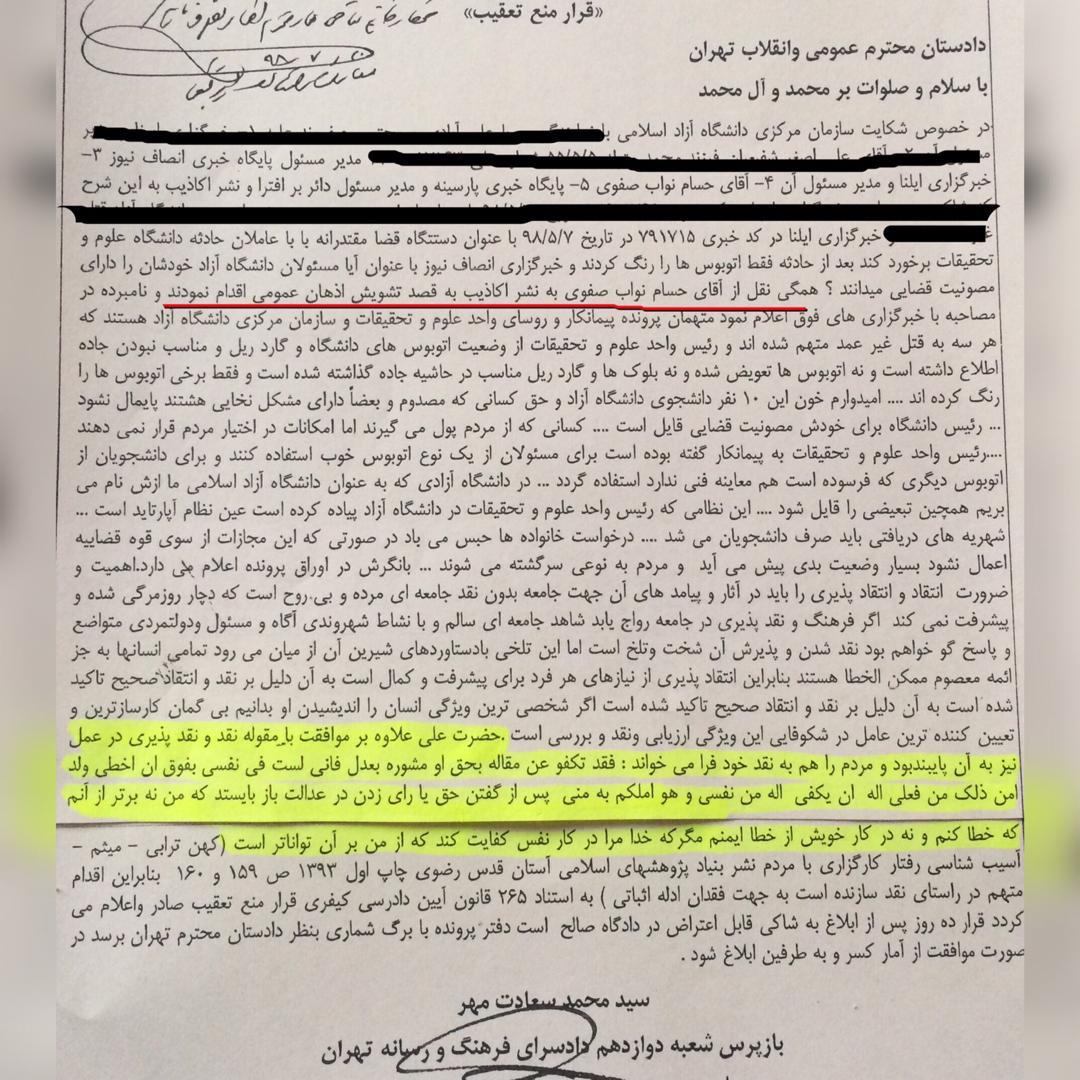 «قرار منع تعقیب»
۹۸
دادستان محترم عمومی وانقلاب تهران
با سلام و صلوات بر محمد و آل محمد
در خصوص شکایت سازمان مرکزی دانشگاه آزاد اسلامی
مدیر مسئول پایگاه خبری انصاف نیوز ۳-
خبرگزاری ایلنا و مدیر مسئول آن ۴- آقای حسام نواب صفوی ۵- پایگاه خبری پارسینه و مدیر مسئول دائر بر افترا و نشر اکاذیب به این شرح
خبرگزاری ایلنا در کد خبری ۷۹۱۷۱۵ در تاریخ ۹۸/۵/۷ با عنوان دستتگاه قضا مقتدرانه با با عاملان حادثه دانشگاه علوم و
تحقیقات برخورد کند بعد از حادثه فقط اتوبوس ها را رنگ کردند و خبرگزاری انصاف نیوز با عنوان آیا مسئولان دانشگاه آزاد خودشان را دارای
مصونیت قضایی میدانند ؟ همگی نقل از آقای حسام نواب صفوی به نشر اکاذیب به قصد تشویش اذهان عمومی اقدام نمودند و نامبرده در
مصاحبه با خبرگزاری های فوق اعلام نمود متهمان پرونده پیمانکار و روسای واحد علوم و تحقیقات و سازمان مرکزی دانشگاه آزاد هستند که
هر سه به قتل غیر عمد متهم شده اند و رئیس واحد علوم و تحقیقات از وضعیت اتوبوس های دانشگاه و گارد ریل و مناسب نبودن جاده
اطلاع داشته است و نه اتوبوس ها تعویض شده و نه بلوک ها و گارد ریل مناسب در حاشیه جاده گذاشته شده است و فقط برخی اتوبوس ها را
رنگ کرده اند .... امیدوارم خون این ۱۰ نفر دانشجوی دانشگاه آزاد و حق کسانی که مصدوم و بعضاً دارای مشکل نخایی هشتند پایمال نشود
... رئیس دانشگاه برای خودش مصونیت قضایی قایل است .... کسانی که از مردم پول می گیرند اما امکانات در اختیار مردم قرار نمی دهند
....رئیس واحد علوم و تحقیقات به پیمانکار گفته بوده است برای مسئولان از یک نوع اتوبوس خوب استفاده کنند و برای دانشجویان از
اتوبوس دیگری که فرسوده است هم معاینه فنی ندارد استفاده گردد ... در دانشگاه آزادی که به عنوان دانشگاه آزاد اسلامی ما ازش نام می
بریم همچین تبعیضی را قایل شود .... این نظامی که رئیس واحد علوم و تحقیقات در دانشگاه آزاد پیاده کرده است عین نظام آپارتاید است ...
شهریه های دریافتی باید صرف دانشجویان می شد .... درخواست خانواده ها حبس می باد در صورتی که این مجازات از سوی قوه قضاییه
اعمال نشود بسیار وضعیت بدی پیش می آید و مردم به نوعی سرگشته می شوند ... بانگرش در اوراق پرونده اعلام می دارد.اهمیت و
ضرورت انتقاد و انتقاد پذیری را باید در آثار و پیامد های آن جهت جامعه بدون نقد جامعه ای مرده و بی روح است که دچار روزمرگی شده و
پیشرفت نمی کند اگر فرهنگ و نقد پذیری در جامعه رواج یابد شاهد جامعه ای سالم و با نشاط شهروندی آگاه و مسئول ودولتمردی متواضع
و پاسخ گو خواهم بود نقد شدن و پذیرش آن شخت وتلخ است اما این تلخی بادستاوردهای شیرین آن از میان می رود تمامی انسانها به جز
ائمه معصوم ممکن الخطا هستند بنابراین انتقاد پذیری از نیازهای هر فرد برای پیشرفت و کمال است به آن دلیل بر نقد و انتقاد صحیح تاکید
شده است به آن دلیل بر نقد و انتقاد صحیح تاکید شده است اگر شخصی ترین ویژگی انسان را اندیشیدن او بدانیم بی گمان کارسازترین و
تعیین کننده ترین عامل در شکوفایی این ویژگی ارزیابی ونقد و بررسی است .حضرت علی علاوه بر موافقت با مقوله نقد و نقد پذیری در عمل
نیز به آن پایبندبود و مردم را هم به نقد خود فرا می خواند : فقد تکفو عن مقاله بحق او مشوره بعدل فانی لست فی نفسی بفوق ان اخطی ولد
امن ذلک من فعلی اله ان یکفی اله من نفسی و هو املکم به منی پس از گفتن حق یا رای زدن در عدالت باز بایستد که من نه برتر از آنم
که خطا کنم و نه در کار خویش از خطا ایمنم مگرکه خدا مرا در کار نفس کفایت کند که از من بر آن تواناتر است (کهن ترابی - میثم -
آسیب شناسی رفتار کارگزاری با مردم نشر بنیاد پژوهشهای اسلامی آستان قدس رضوی چاپ اول ۱۳۹۳ ص ۱۵۹ و ۱۶۰ بنابراین اقدام
متهم در راستای نقد سازنده است به جهت فقدان ادله اثباتی ) به استناد ۲۶۵ قانون آیین دادرسی کیفری قرار منع تعقیب صادر واعلام می
گردد قرار ده روز پس از ابلاغ به شاکی قابل اعتراض در دادگاه صالح است دفتر پرونده با برگ شماری بنظر دادستان محترم تهران برسد در
صورت موافقت از آمار کسر و به طرفین ابلاغ شود .
سید محمد سعادت مهر
بازپرس شعبه دوازدهم دادسرای فرهنگ و رسانه تهران